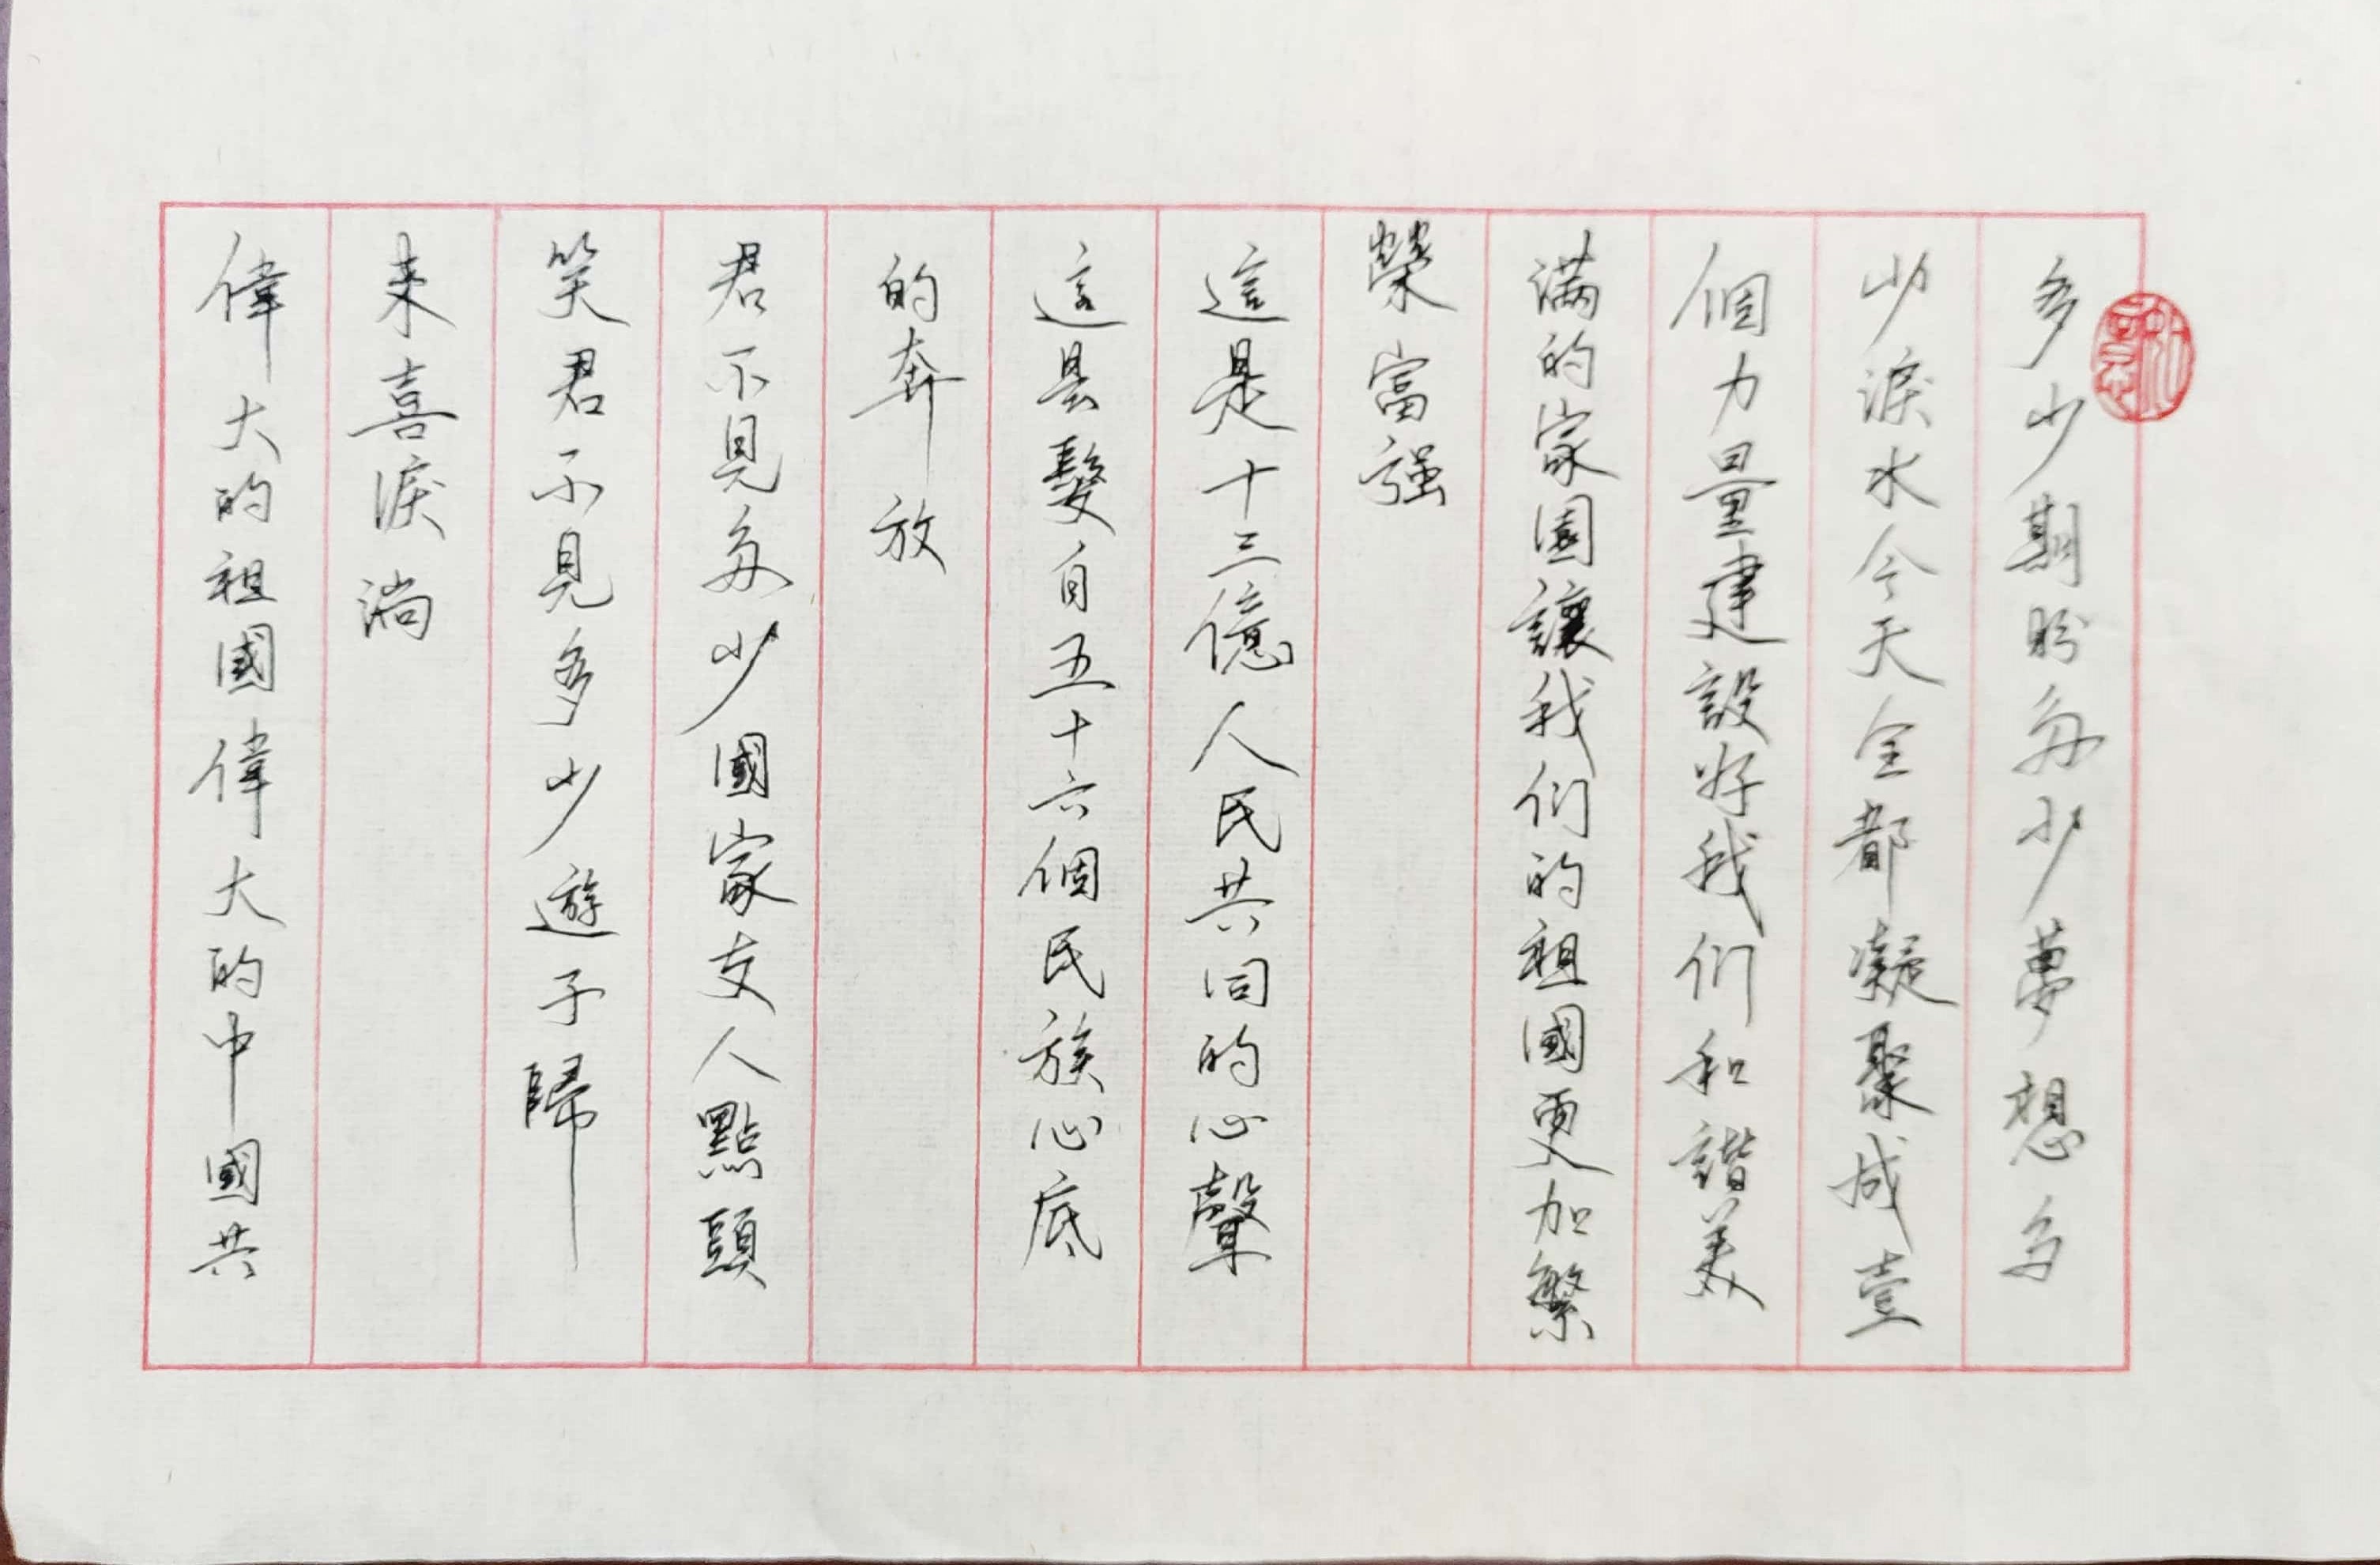 多少期盼多少夢想多
少淚水今天全都凝聚成壹
個力量建設好我们和諧美
满的家園讓我们的祖國更加繁
榮富强
這是十三億人民共同的心聲
這是發自五十六個民族心底
的奔放
君不見多少國家友人點頭
笑君不見多少遊子歸
来喜淚淌
偉大的祖國偉大的中國共